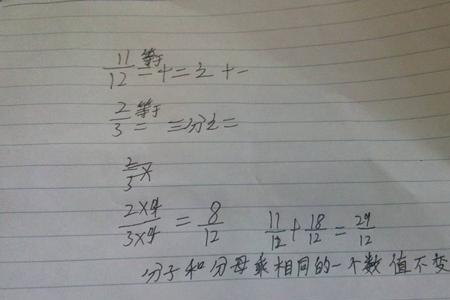 11/12 等于 = 十二之十一
2/3 等于 = 三分之二
2/3 ×
2×4/3×4 = 8/12 11/12 + 18/12 = 29/12
分子和分母乘相同的一个数值不变